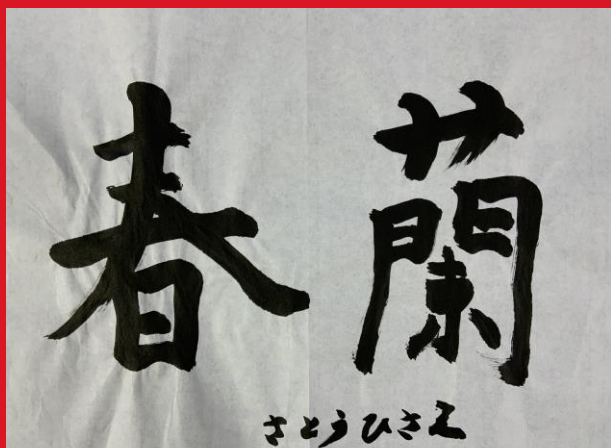 春蘭
さとうひさえ